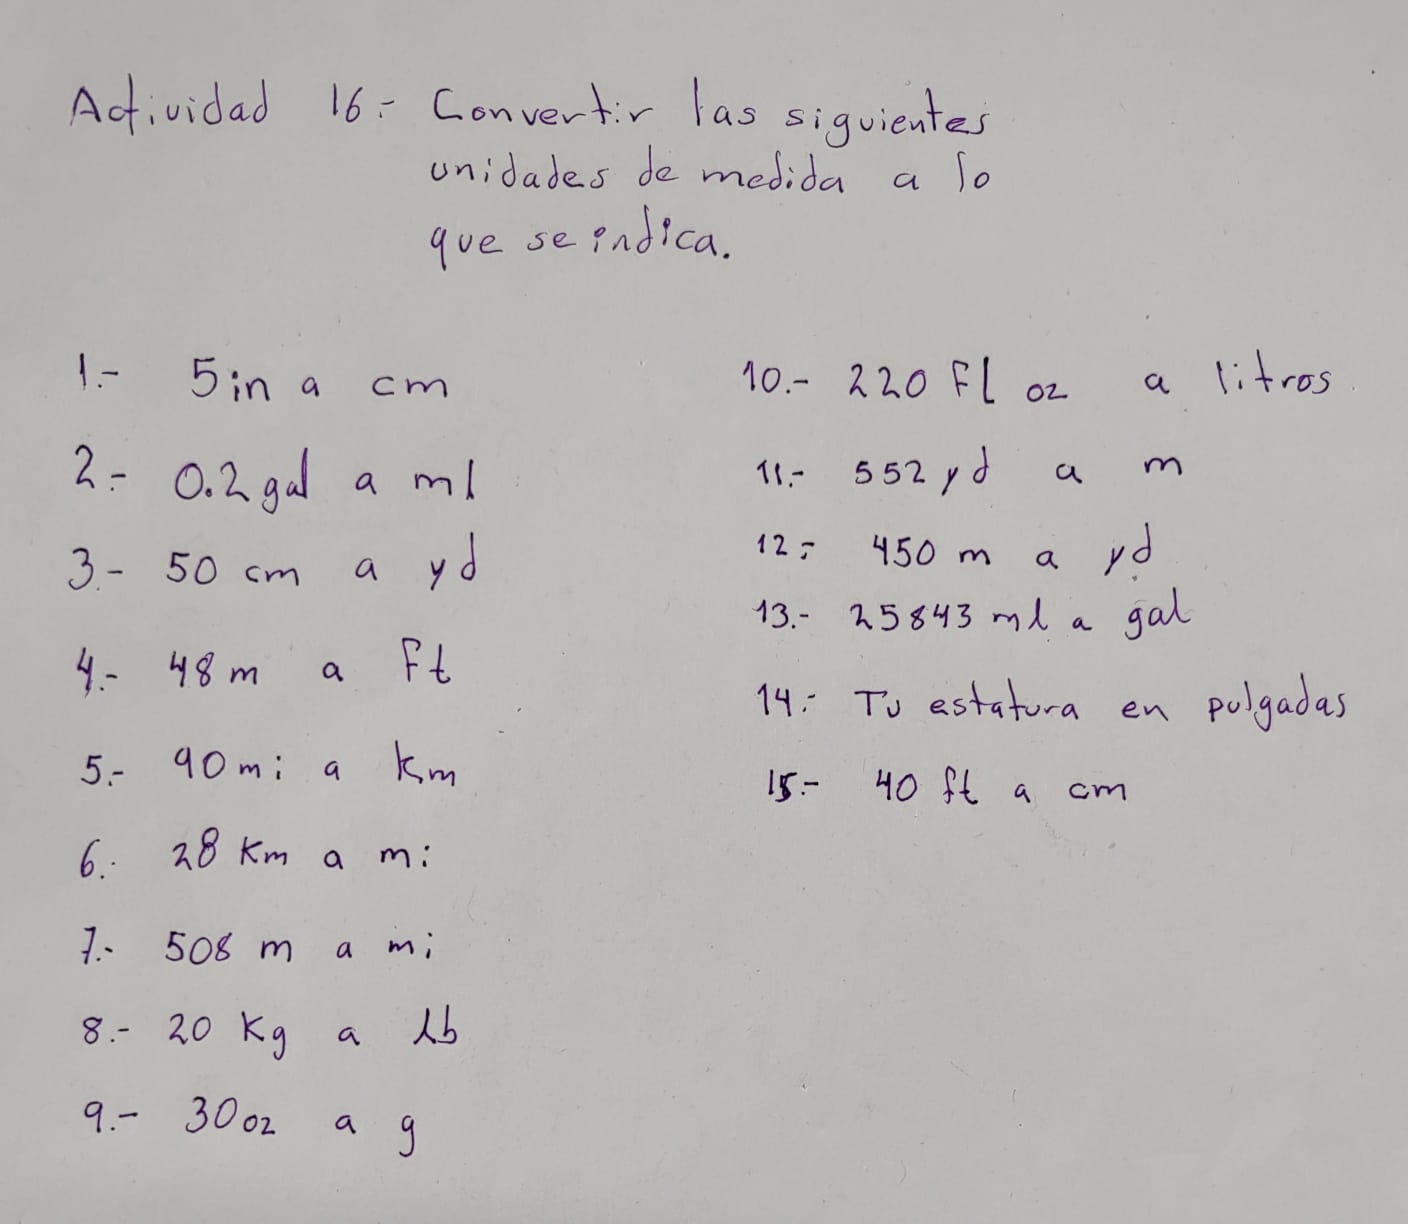 Actividad 16.- Convertir las siguientes
unidades de medida a lo
que se indica.
1.- 5in a cm
2.- 0.2 gal a ml
3.- 50 cm a yd
4.- 48 m a Ft
5.- 90 mi a Km
6.- 28 Km a mi
7.- 508 m a mi
8.- 20 Kg a Lb
9.- 30 oz a g
10.- 220 FL oz a litros.
11.- 552 yd a m
12.- 450 m a yd
13.- 25843 ml a gal
14.- Tu estatura en pulgadas
15.- 40 ft a cm